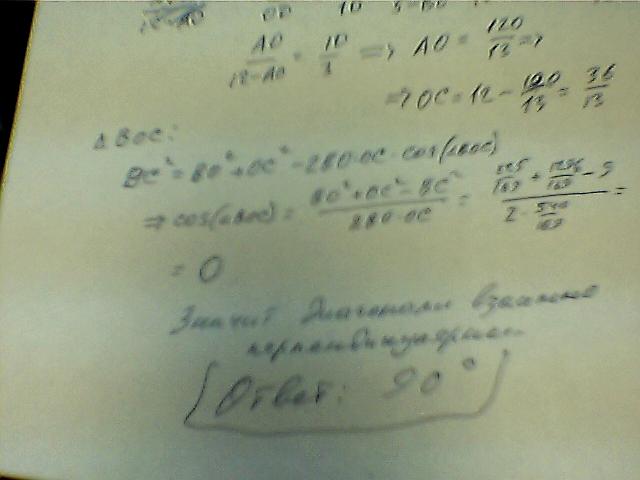 AO/(12-AO) = 10/3 => AO = 120/13 =>
=> OC = 12 - 120/13 = 36/13
△BOC:
BC² = BO² + OC² - 2BO·OC·cos(∠BOC)
=> cos(∠BOC) = (BO² + OC² - BC²)/(2BO·OC) = (225/169 + 1296/169 - 9)/(2·540/169) =
= 0
Значит диагонали взаимно
перпендикулярные.
Ответ: 90°